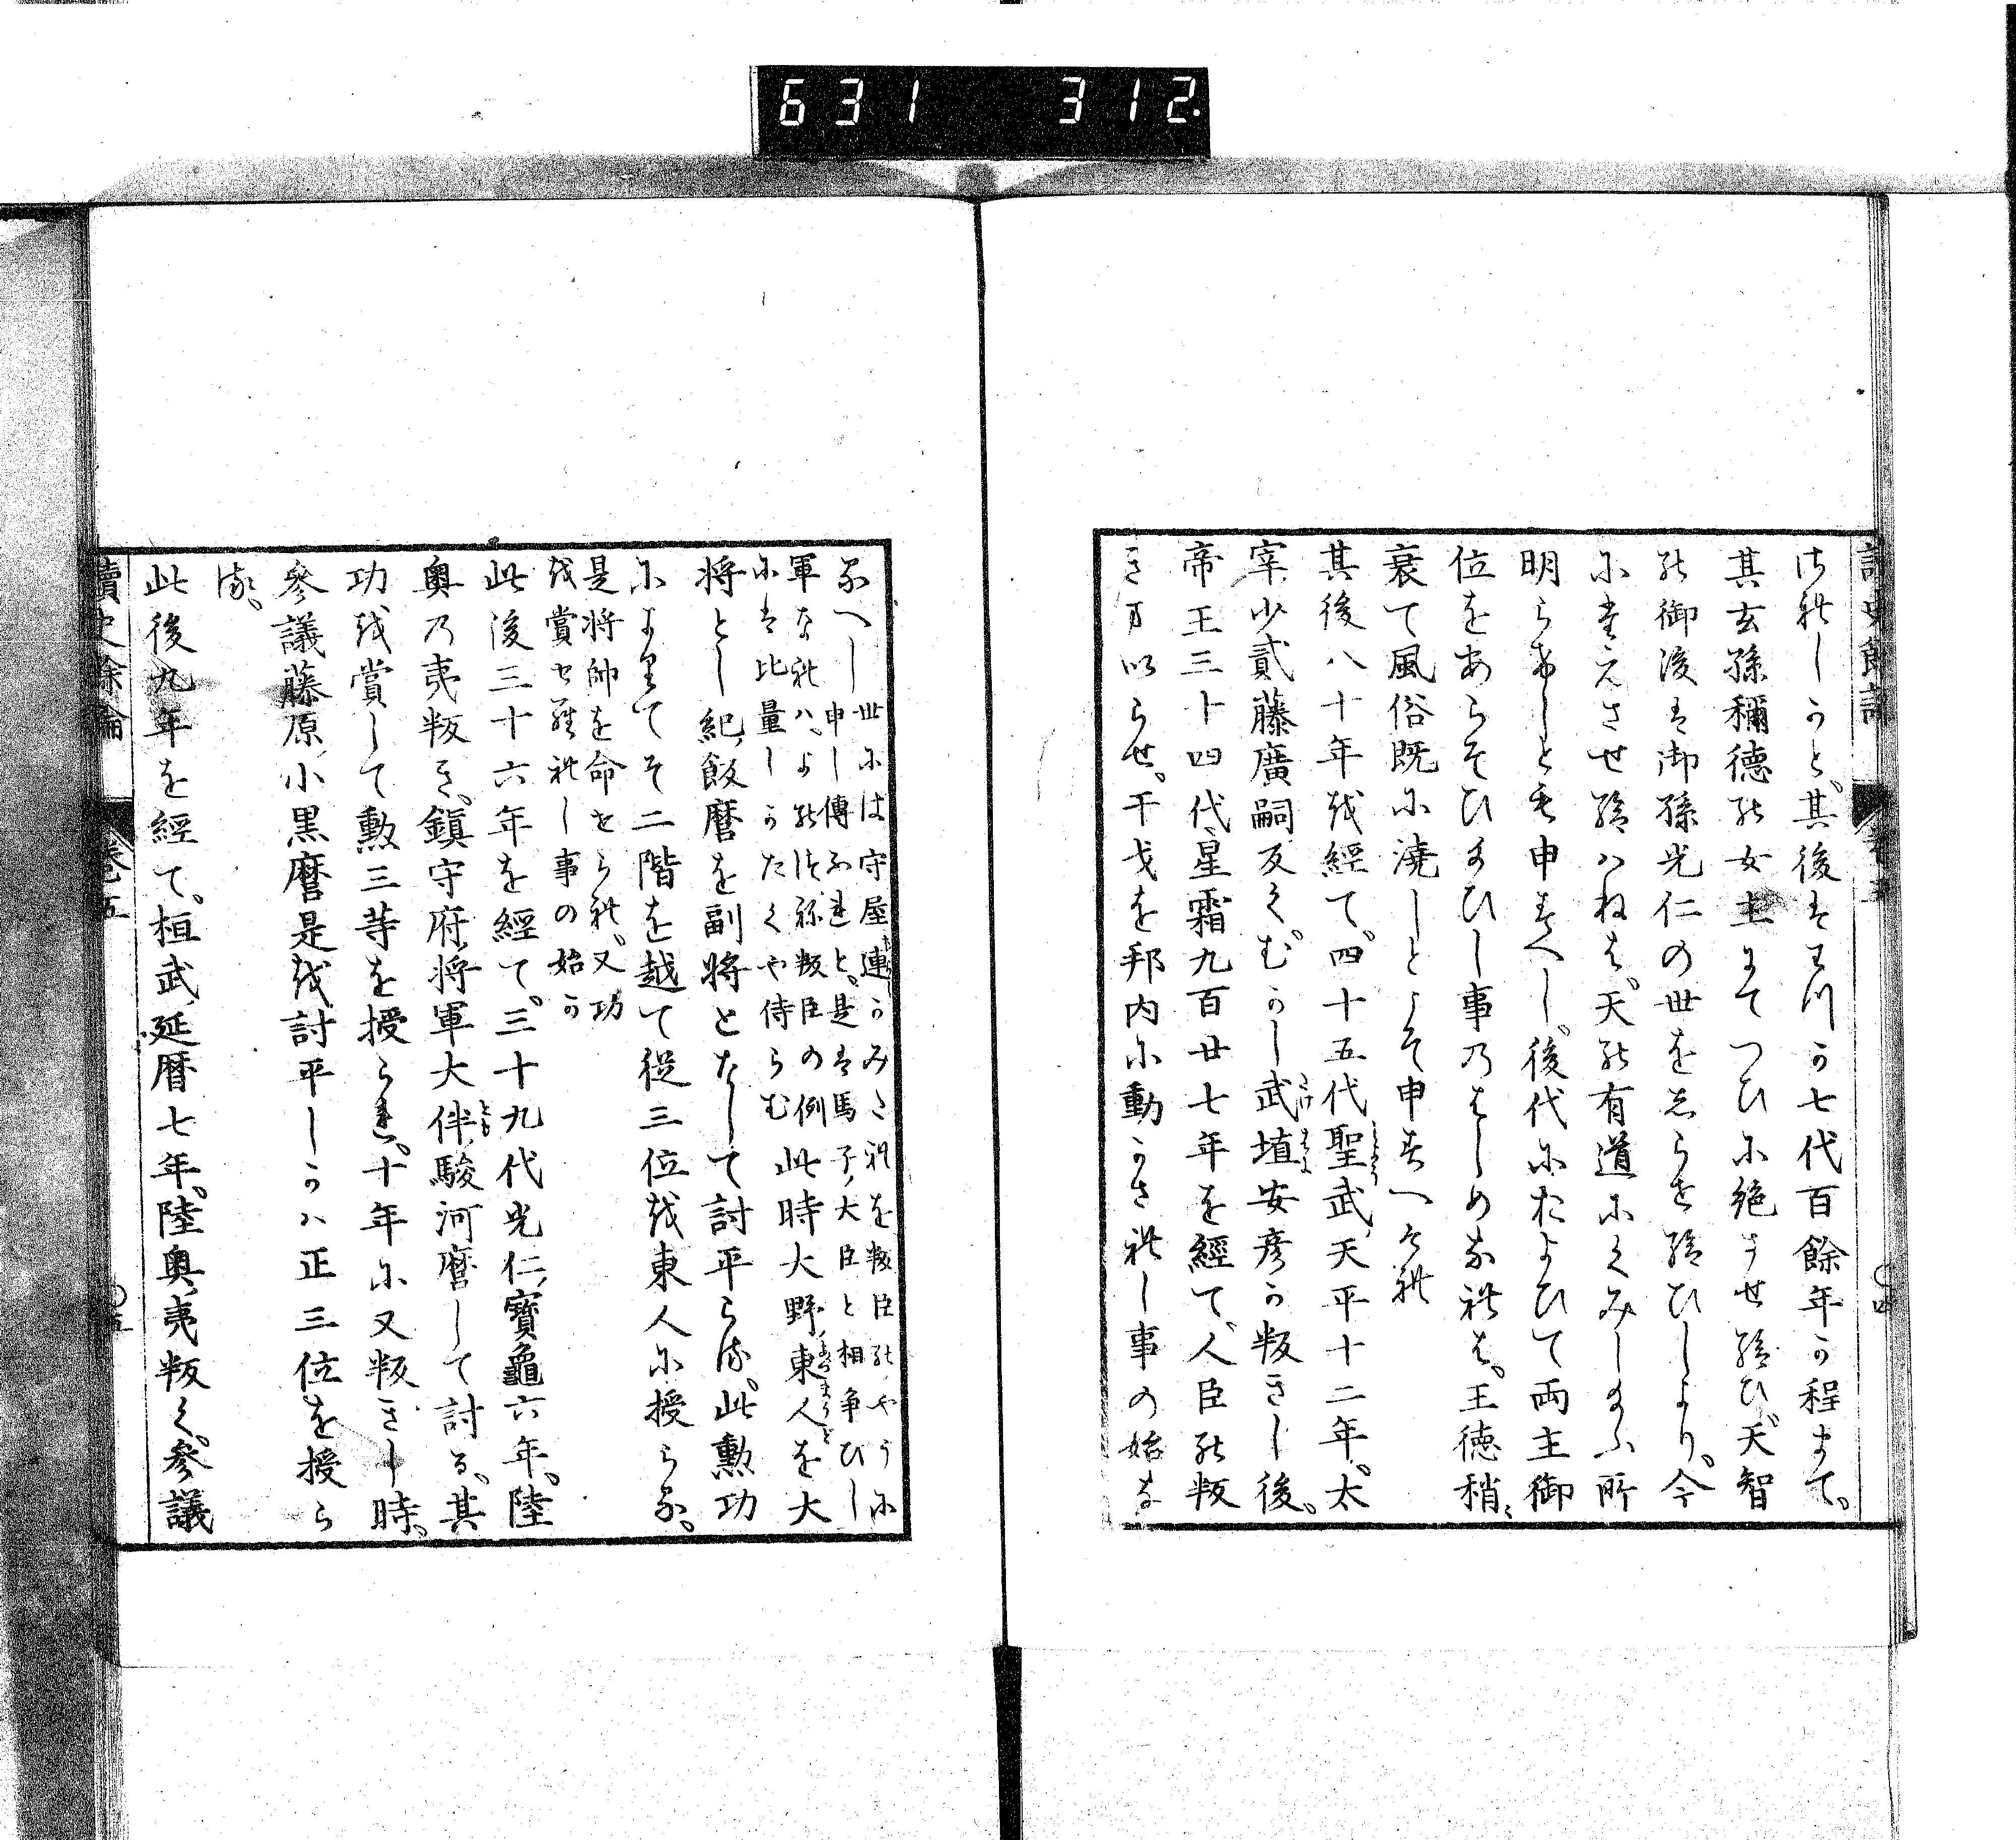 631 312.
讀史餘論
され しかと、其後はわつか七代百餘年か程まて。
其玄孫稱德の女主まてつひに絶させ給ひ、天智
の御後は御孫光仁の世をしらせ給ひしより。今
にたえさせ給はねは、天の有道にくみしたまふ所
明らけしとも申すへし。後代におよひて両主御
位をあらそひたまひし事のはしめなれは、王徳稍〻
衰て風俗既に澆しとこそ申すへけれ
其後八十年を經て、四十五代聖武、天平十二年。太
宰少貳藤廣嗣反く。むかし武埴安彦か叛きし後。
帝王三十四代、星霜九百廿七年を經て、人臣の叛
き まいらせ、干戈を邦内に動かされし事の始な
るへし
世には守屋連かみされを叛臣のやうに
申し傳ふれと、是は馬子大臣と相争ひし
軍なれは、よのつね叛臣の例
には比量しかたくや侍らむ
此時大野東人を大
将とし紀飯麿を副將となして討平らる。此勲功
によりてそ二階を越て從三位を東人に授らる。
是将帥を命せられ、又功
を賞せられし事の始か
此後三十六年を經て。三十九代光仁、寶龜六年。陸
奥の夷叛き。鎮守府将軍大伴駿河麿して討る、其
功を賞して勲三等を授らる。十年に又叛きし時。
參議藤原小黒麿是を討平しかハ正三位を授ら
る。
此後九年を經て。桓武、延暦七年。陸奥夷叛く。參議
讀史餘論
卷五
〇五